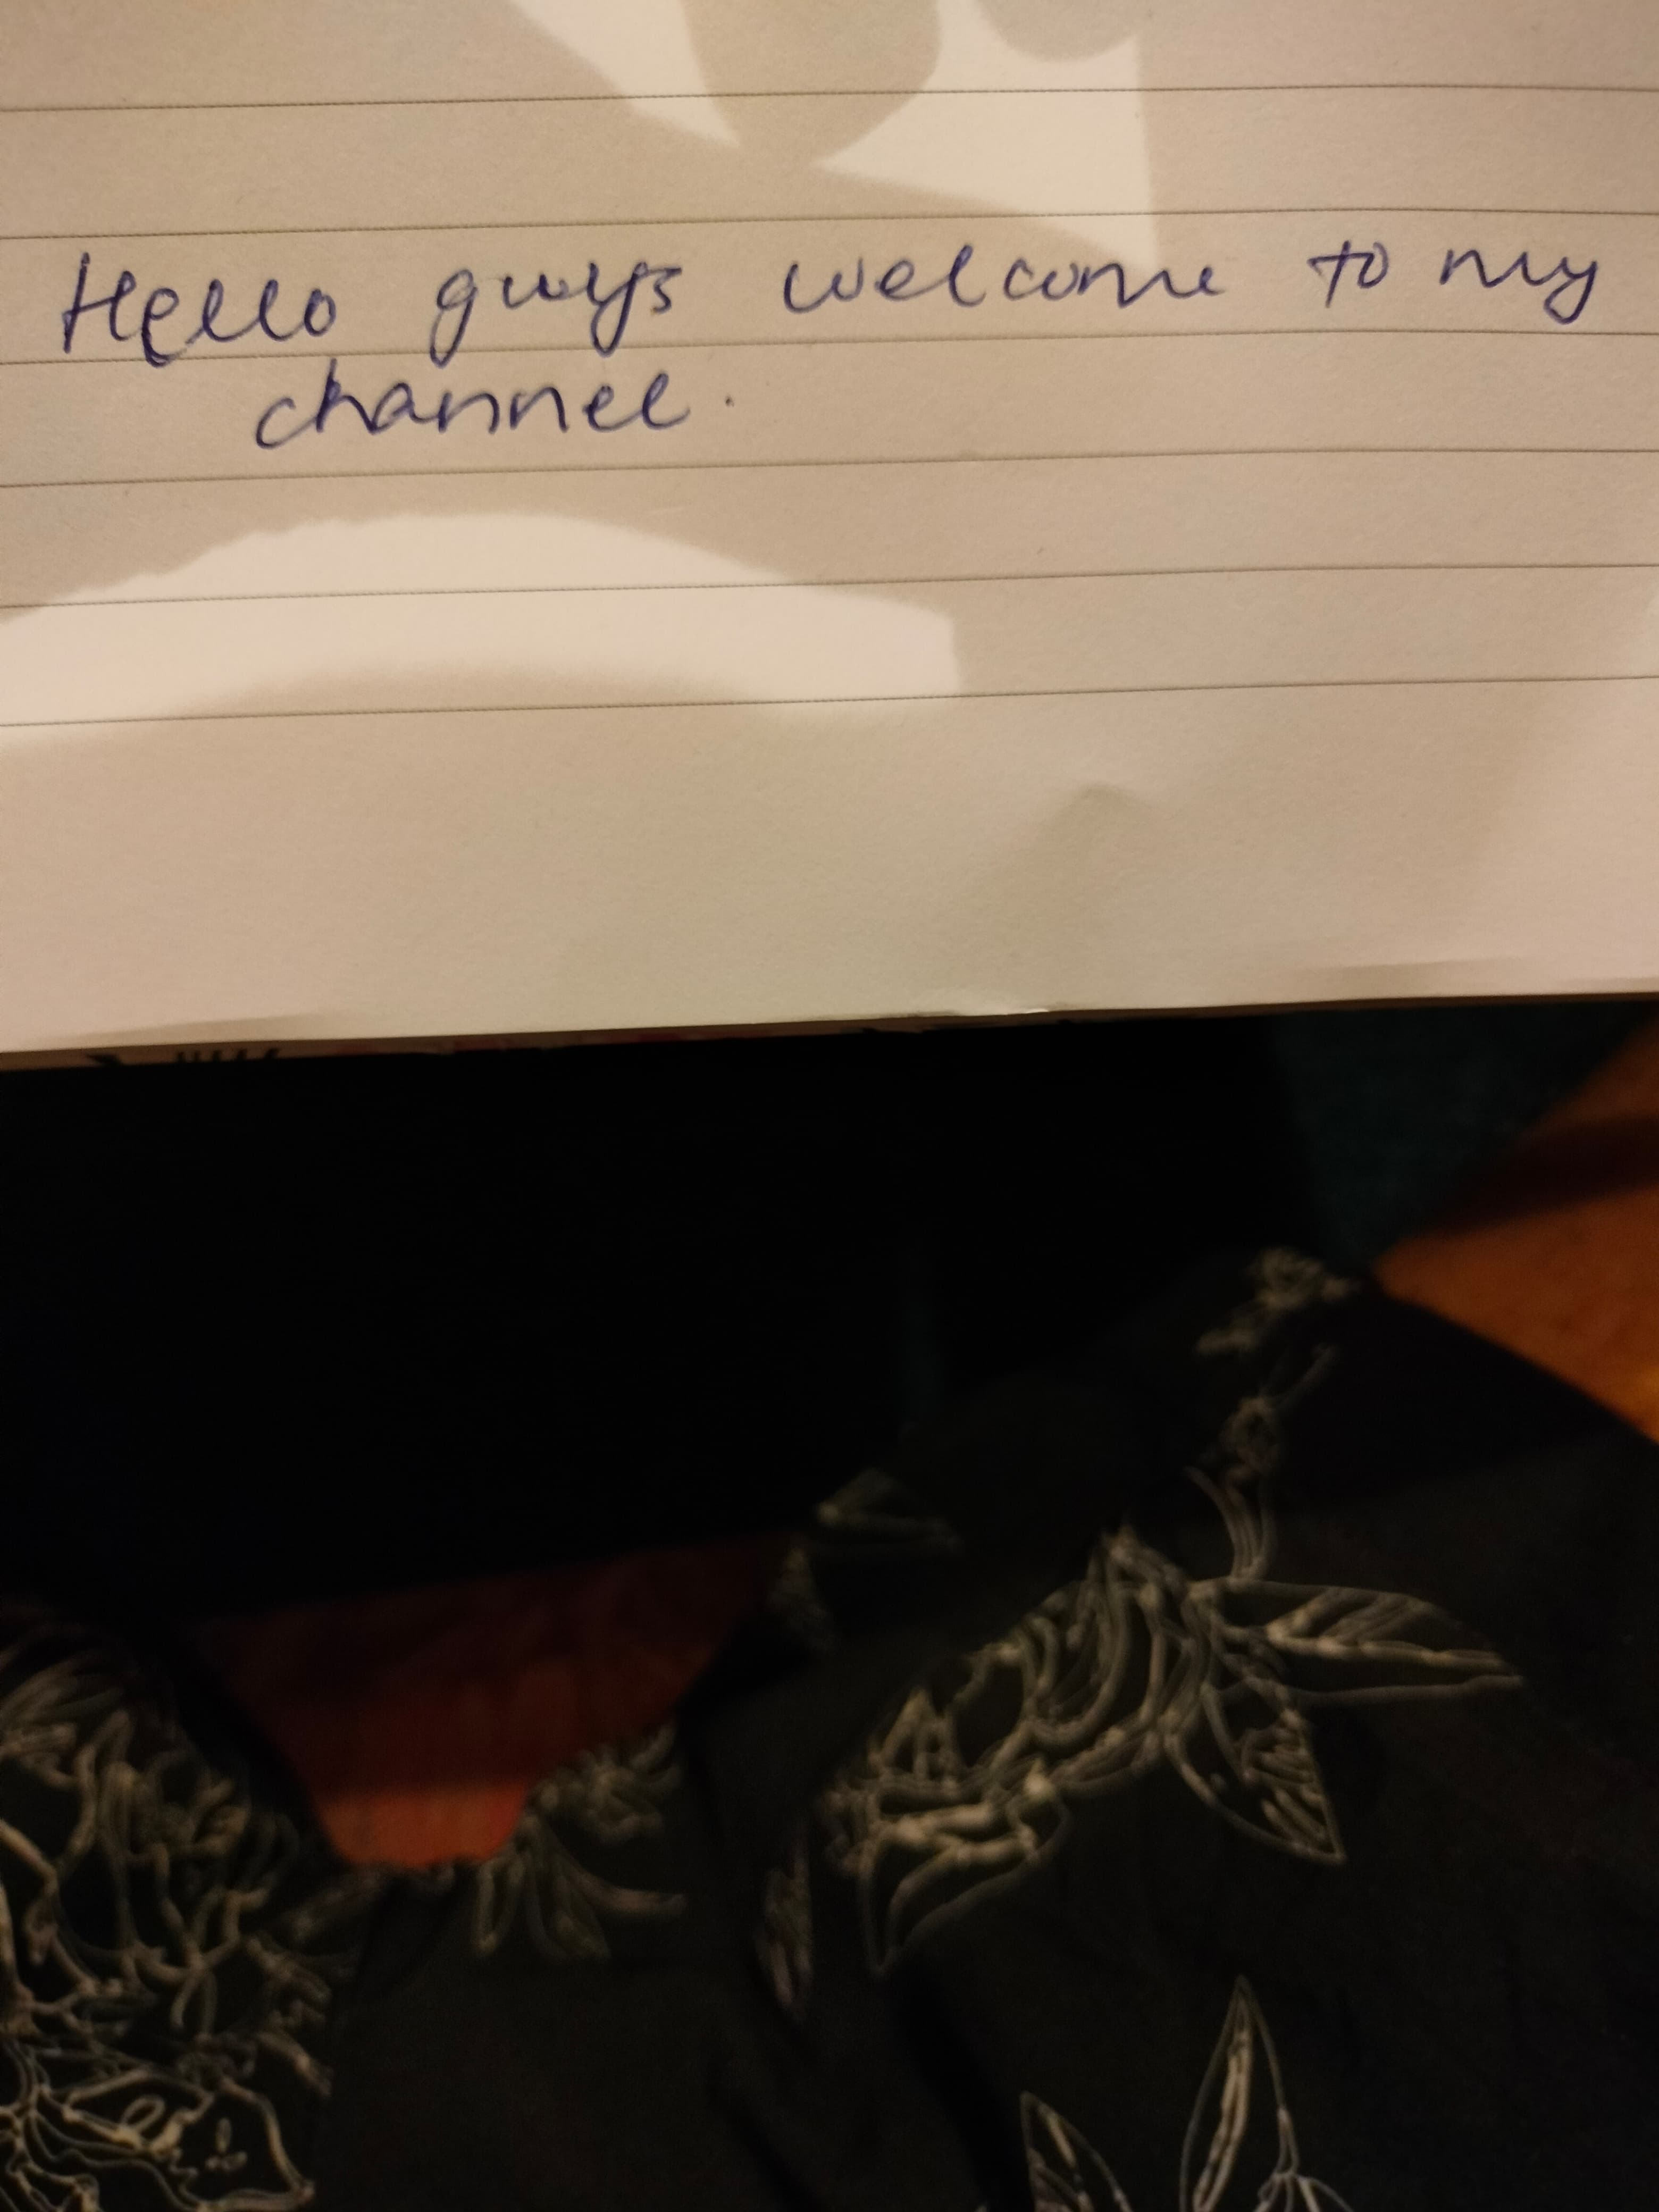 Hello guys welcome to my
channel.